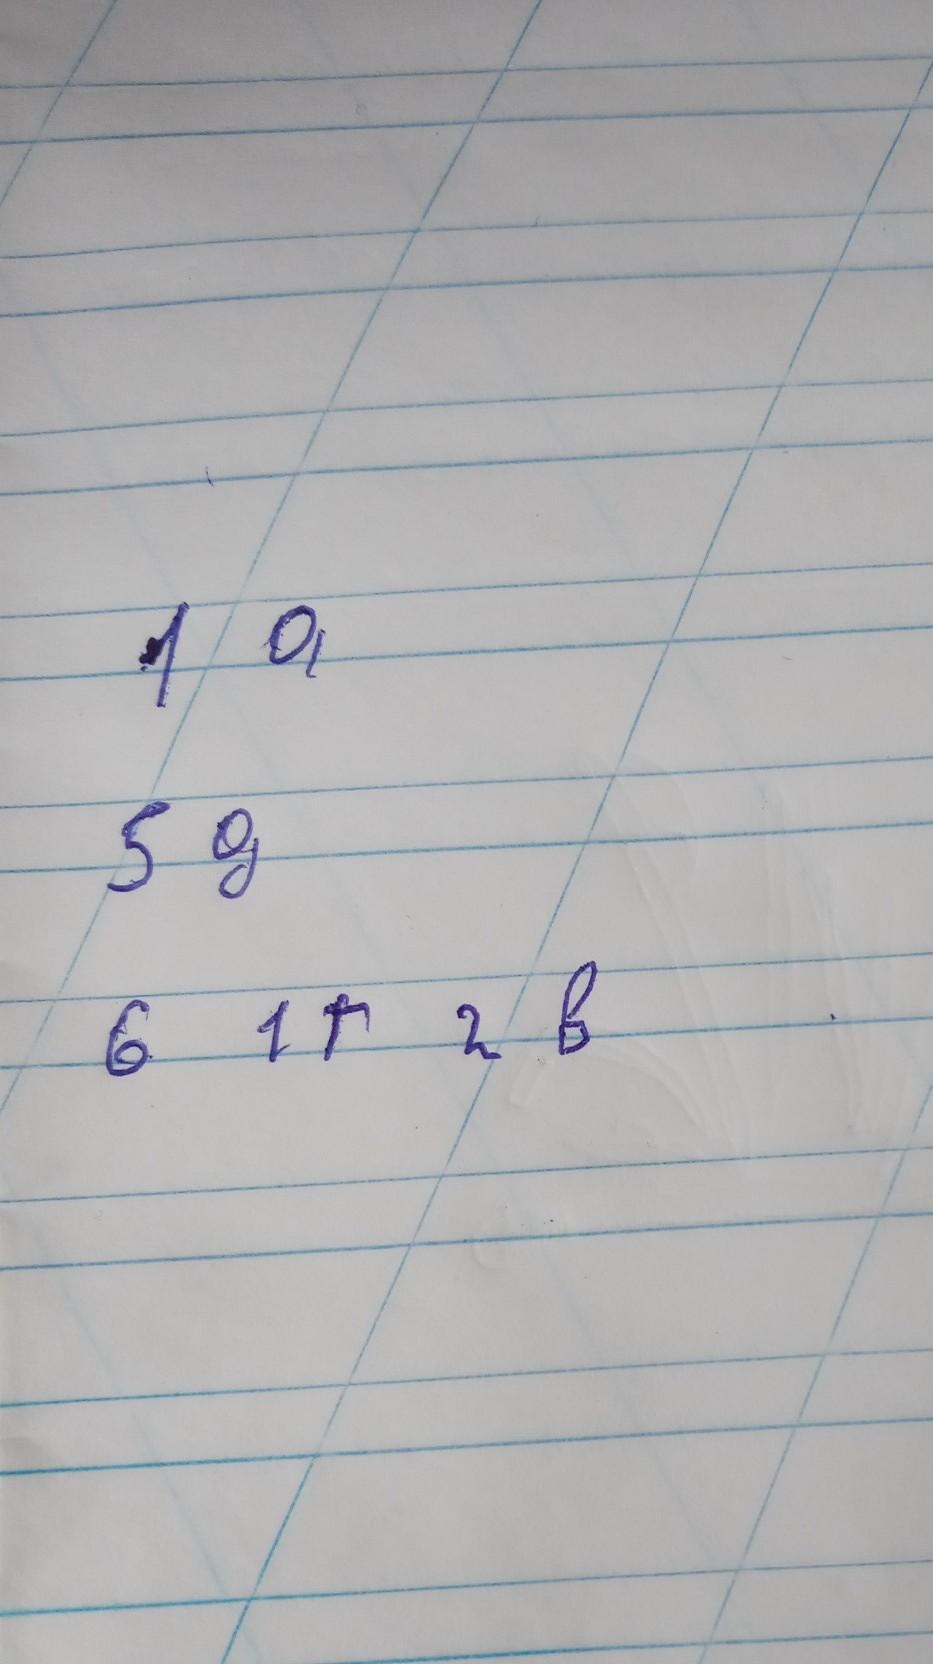 1 а
5 д
6 1 г 2 в